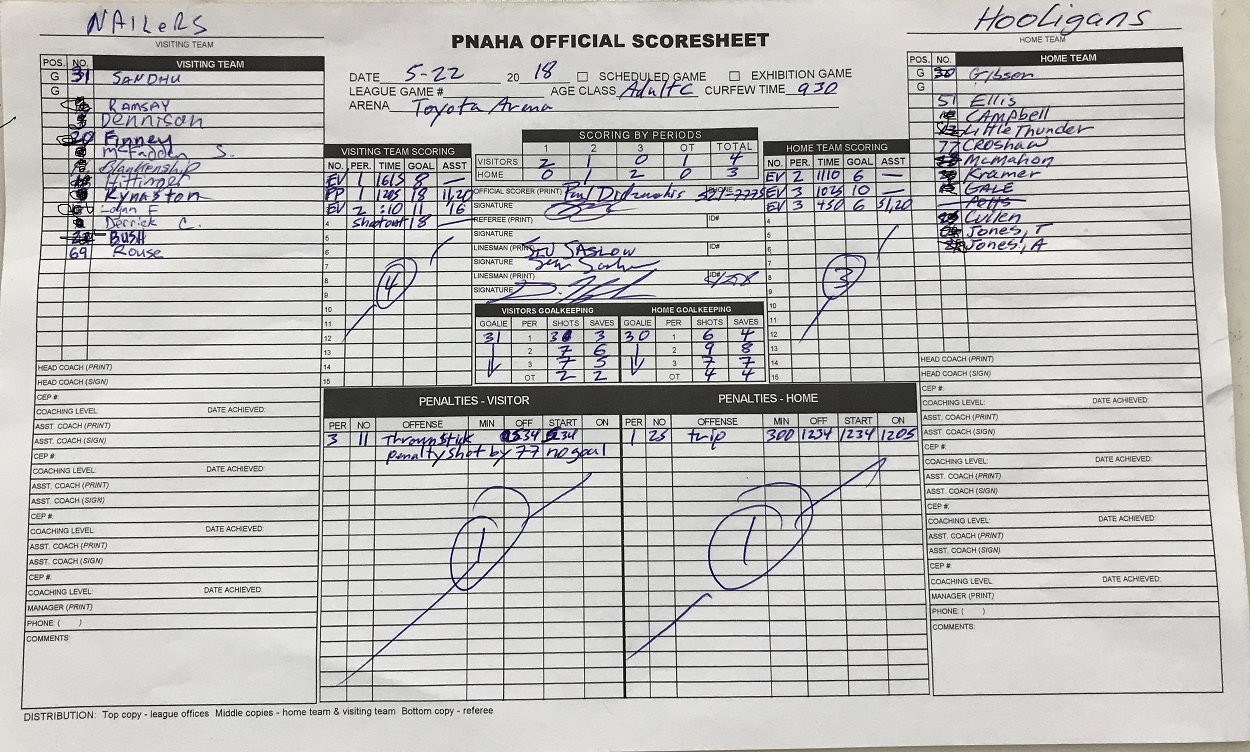 NAILERS
VISITING TEAM
Hooligans
HOME TEAM
PNAHA OFFICIAL SCORESHEET
DATE 5-22 20 18 SCHEDULED GAME EXHIBITION GAME
LEAGUE GAME # AGE CLASS Adult C CURFEW TIME 930
ARENA Toyota Arena
POS. NO. VISITING TEAM
G 31 SANDHU
G
RAMSAY
Dennison
20 Finney
McFadden S.
Blankenship
Hittinger
Kynaston
Derrick C.
BUSH
69 Rouse
VISITING TEAM SCORING
NO. PER. TIME GOAL ASST
EV 1 1615 8 —
PP 1 1205 18 11,20
EV 2 :10 11 16
4 Shootout 18 —
5
6
7
8
9
10
11
12
13
14
15
4
SCORING BY PERIODS
1 2 3 OT TOTAL
VISITORS 2 1 0 1 4
HOME 0 1 2 0 3
OFFICIAL SCORER (PRINT) Paul PHONE
SIGNATURE
REFEREE (PRINT) ID#
SIGNATURE
LINESMAN (PRINT) SASLOW ID#
SIGNATURE
LINESMAN (PRINT) ID#
SIGNATURE
VISITORS GOALKEEPING HOME GOALKEEPING
GOALIE PER SHOTS SAVES GOALIE PER SHOTS SAVES
31 1 3 30 1 6 4
2 7 6 2 9 8
3 7 5 3 7 7
OT 2 2 OT 4 4
HOME TEAM SCORING
NO. PER. TIME GOAL ASST
EV 2 1110 6 —
EV 3 1025 10 —
EV 3 450 6 51,20
4
5
6
7
8
9
10
11
12
13
14
15
3
POS. NO. HOME TEAM
G 30 Gibson
G
51 Ellis
CAMPbell
LittleThunder
77 CROShaw
McMahon
Kramer
GALE
Petts
Cullen
Jones, T
Jones, A
PENALTIES - VISITOR
PER NO OFFENSE MIN OFF START ON
3 11 Thrown Stick 534 534
penalty shot by 77 no goal
1
PENALTIES - HOME
PER NO OFFENSE MIN OFF START ON
1 25 trip 300 1234 1234 1205
1
HEAD COACH (PRINT)
HEAD COACH (SIGN)
CEP #:
COACHING LEVEL: DATE ACHIEVED:
ASST. COACH (PRINT)
ASST. COACH (SIGN)
CEP #:
COACHING LEVEL: DATE ACHIEVED:
ASST. COACH (PRINT)
ASST. COACH (SIGN)
CEP #:
COACHING LEVEL: DATE ACHIEVED:
ASST. COACH (PRINT)
ASST. COACH (SIGN)
CEP #:
COACHING LEVEL: DATE ACHIEVED:
MANAGER (PRINT)
PHONE: ( )
COMMENTS:
HEAD COACH (PRINT)
HEAD COACH (SIGN)
CEP #:
COACHING LEVEL: DATE ACHIEVED:
ASST. COACH (PRINT)
ASST. COACH (SIGN)
CEP #:
COACHING LEVEL: DATE ACHIEVED:
ASST. COACH (PRINT)
ASST. COACH (SIGN)
CEP #:
COACHING LEVEL: DATE ACHIEVED:
ASST. COACH (PRINT)
ASST. COACH (SIGN)
CEP #:
COACHING LEVEL: DATE ACHIEVED:
MANAGER (PRINT)
PHONE: ( )
COMMENTS:
DISTRIBUTION: Top copy - league offices Middle copies - home team & visiting team Bottom copy - referee